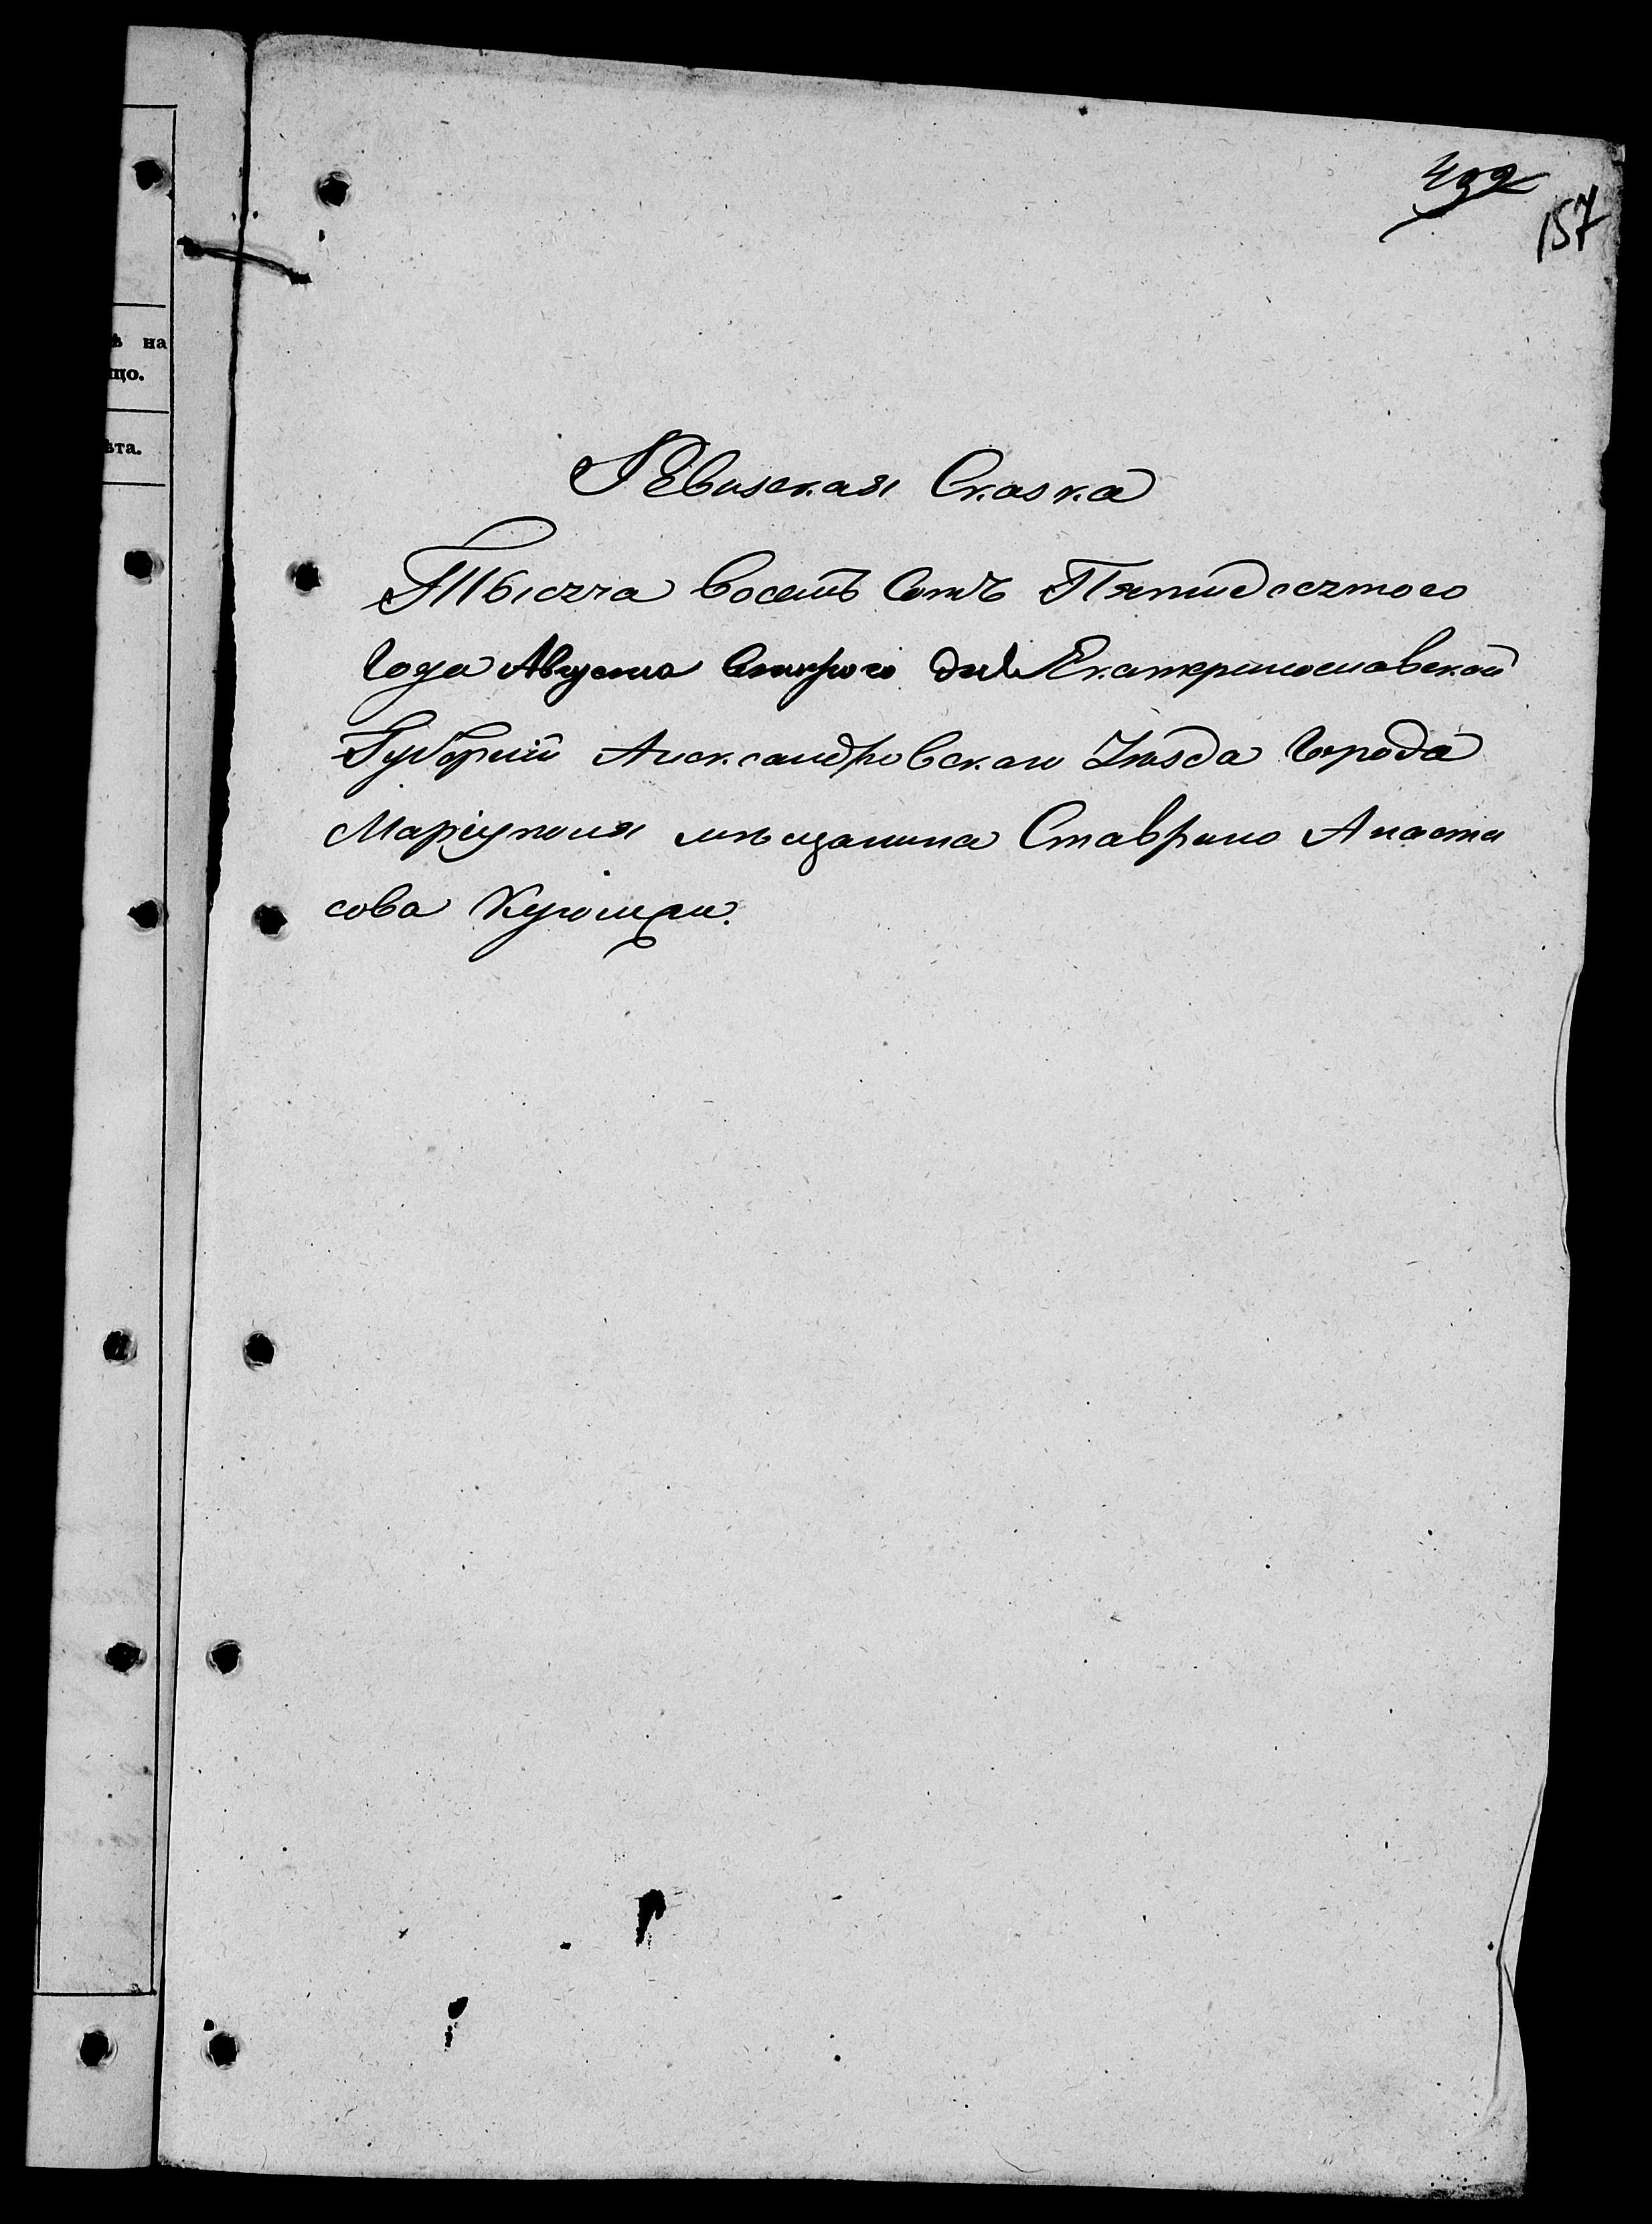 492
157
ѣ на
що.
ѣта.
Ревизская Сказка
Тысяча восемь Сотъ Пятидесятого
Года Августа Второго дня Екатеринославской
Губерніи Александровскаго Уѣзда Города
Маріуполя мѣщанина Ставрино Анаста
сова